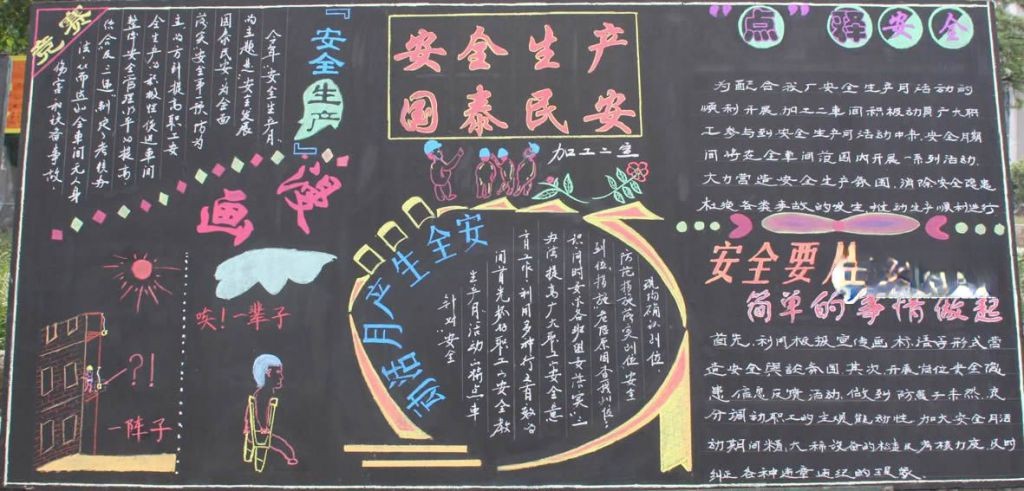 竞赛
『安全生产』
今年安全生产月
为主题是安全发展
国泰民安为全面
落实安全第一预防为
主的方针提高职工安
全生产的积极性促进车间
整体安全管理水平的提高
法以带运小全车间无人身
伤害和设备事故.
漫画
唉!一辈子
?!
一阵子
安全生产
国泰民安
加工二车
安全生产月活动
针对安全
生产月活动
间首先抓好职工安全教
育工作利用多种行之有效的
办法提高广大职工安全意
识同时要求各班组要落实
防范措施落实到位安全
“点”评安全
为配合我厂安全生产月活动的
顺利开展.加工二车间积极动员广大职
工参与到安全生产月活动中来.安全月期
间将在全车间范围内开展一系列活动.
大力营造安全生产氛围.消除安全隐患
杜绝各类事故的发生推动生产顺利进行
安全要从
简单的事情做起
首先.利用板报宣传画等形式营
造安全舆论氛围.其次.开展岗位安全隐
患信息反馈活动.做到防患于未然.充
分调动职工的主观能动性.加大安全月活
动期间精、大、稀设备的检查及考核力度.及时
纠正各种违章违纪的现象.